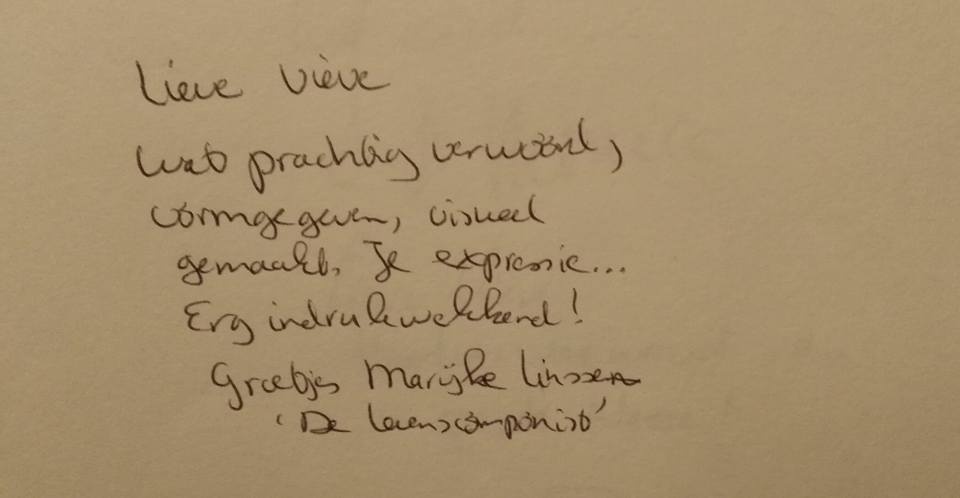 Lieve Viève
wat prachtig verwoord,
vormgegeven, visueel
gemaakt. Je expressie...
Erg indrukwekkend!
Groetjes Marijke Linssen
'De levenscomponist'